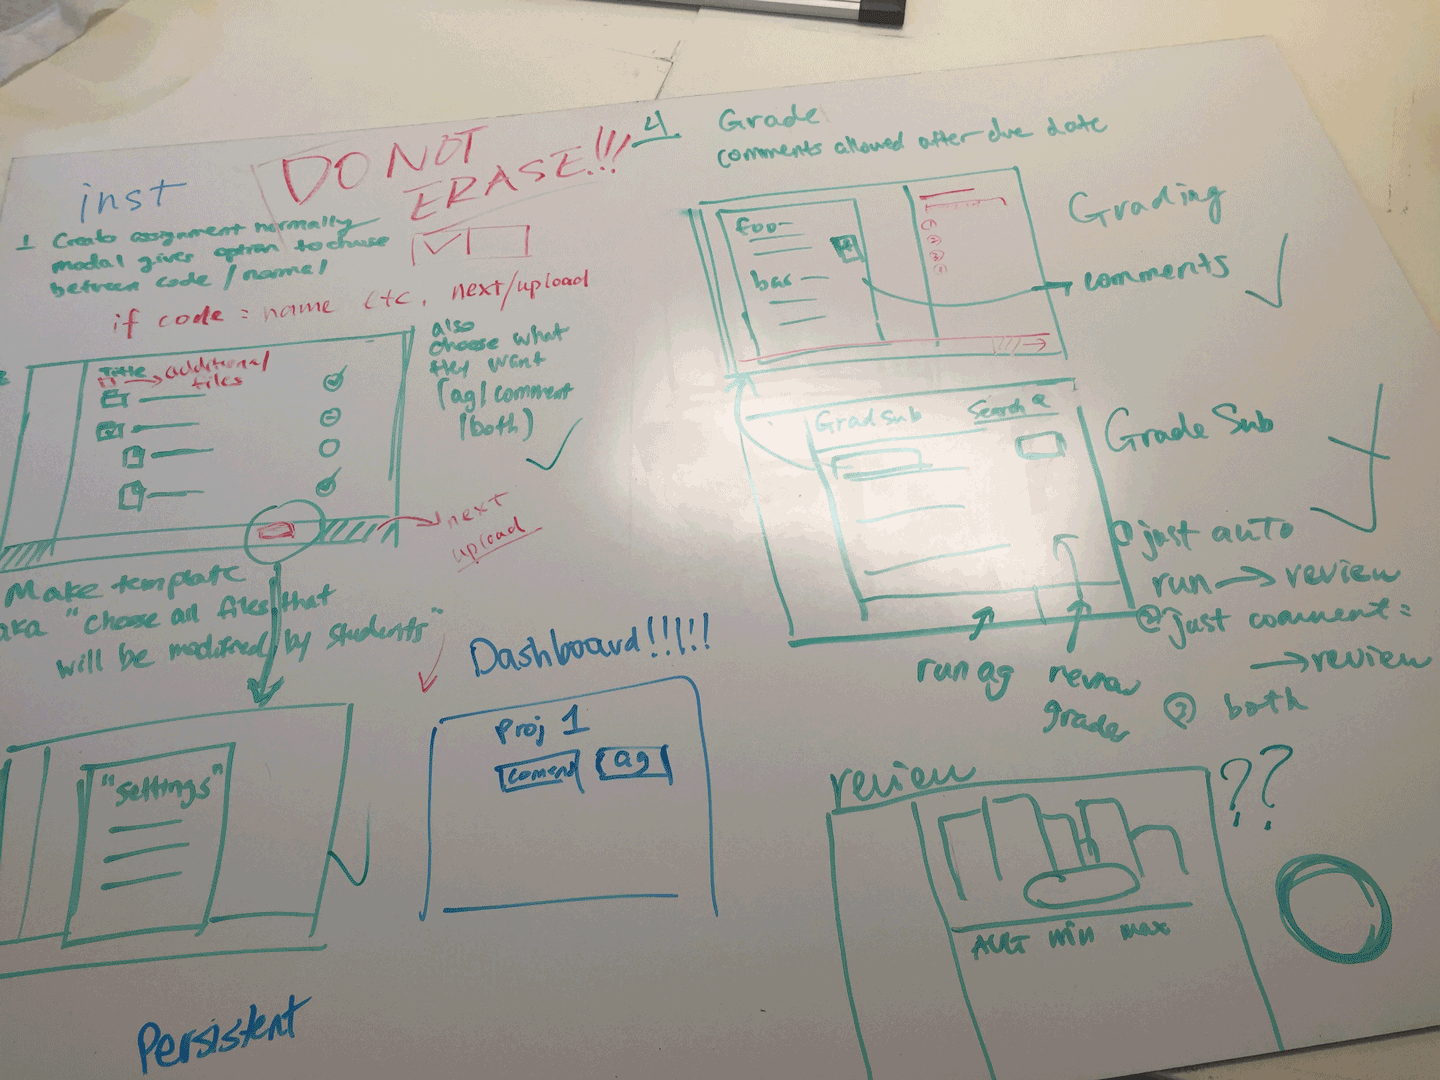 inst
DO NOT
ERASE!!!
1 Create assignment normally
modal gives option to choose
between code / normal
if code = name etc. next/upload
Title
additional
files
also
choose what
they want
(ag/comment
/both)
next
upload
Make template
aka "choose all files that
will be modified by students"
"settings"
Dashboard!!!!!
Proj 1
coment
ag
Persistent
4 Grade
comments allowed after due date
foo
bar
Grading
comments
Grad Sub
Search
Grade Sub
① just auto
run → review
② just comment =
→ review
run ag
review
grades
both
review
??
AVG min max